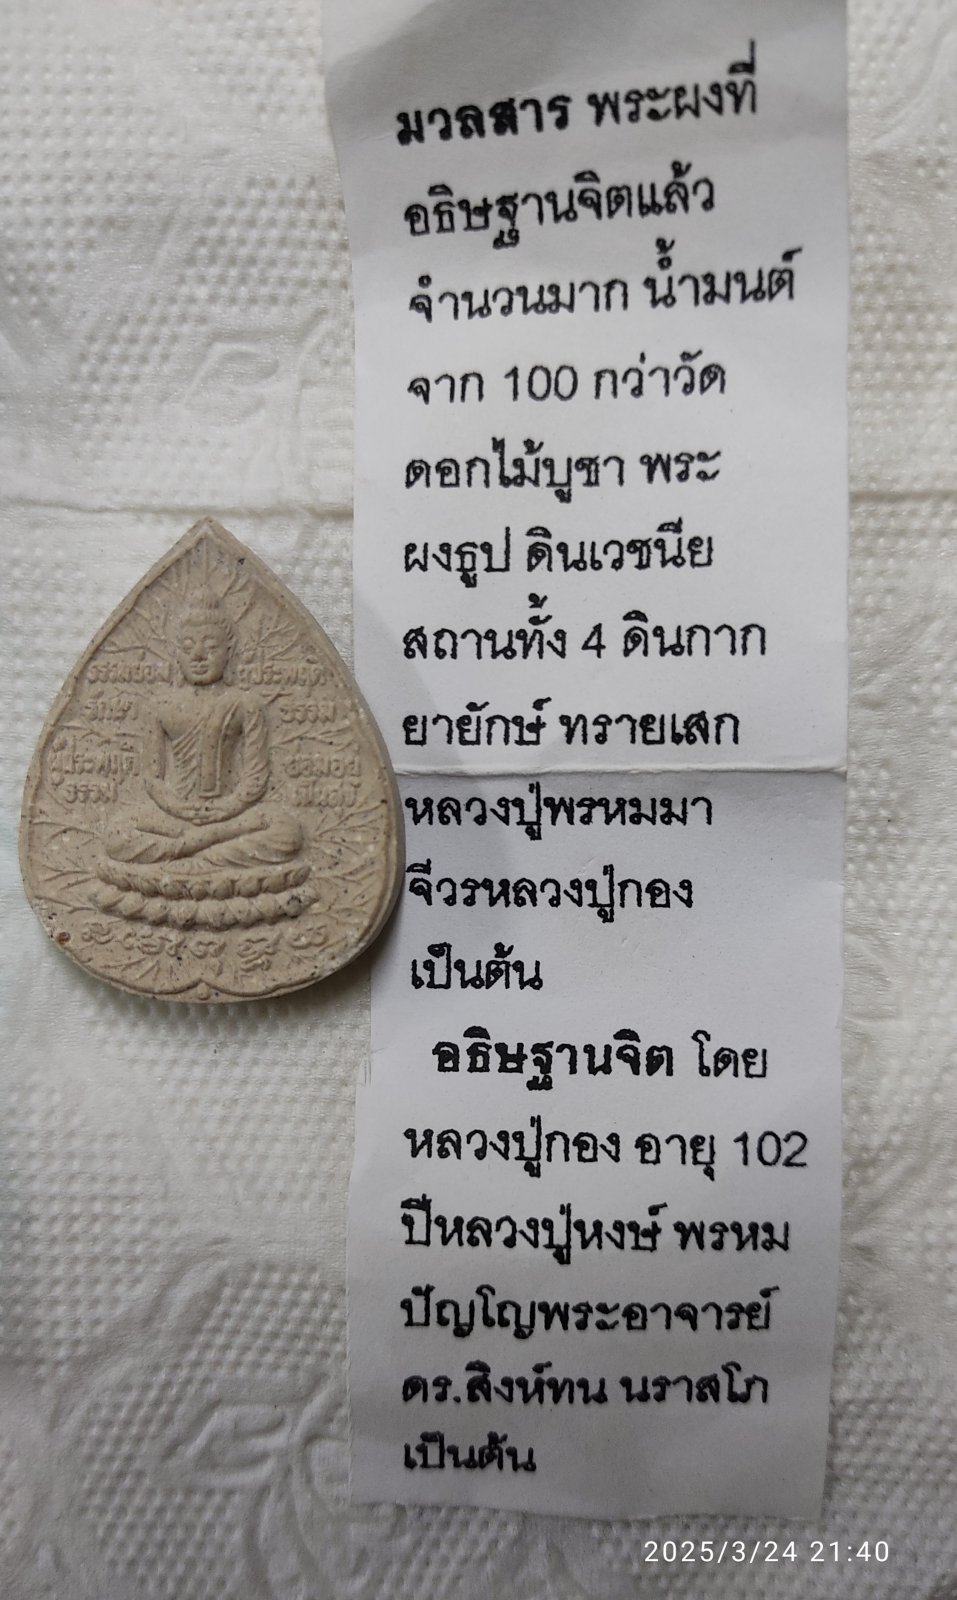 มวลสาร พระผงที่
อธิษฐานจิตแล้ว
จำนวนมาก น้ำมนต์
จาก 100 กว่าวัด
ดอกไม้บูชา พระ
ผงธูป ดินเวชนีย
สถานทั้ง 4 ดินกาก
ยายักษ์ ทรายเสก
หลวงปู่พรหมมา
จีวรหลวงปู่กอง
เป็นต้น
อธิษฐานจิต โดย
หลวงปู่กอง อายุ 102
ปีหลวงปู่หงษ์ พรหม
ปัญโญพระอาจารย์
ดร.สิงห์ทน นราสโภ
เป็นต้น
ธรรมย่อม ผู้ประพฤติ
รักษา ธรรม
ผู้ประพฤติ ย่อมอยู่
ธรรม เป็นสุข
2025/3/24 21:40